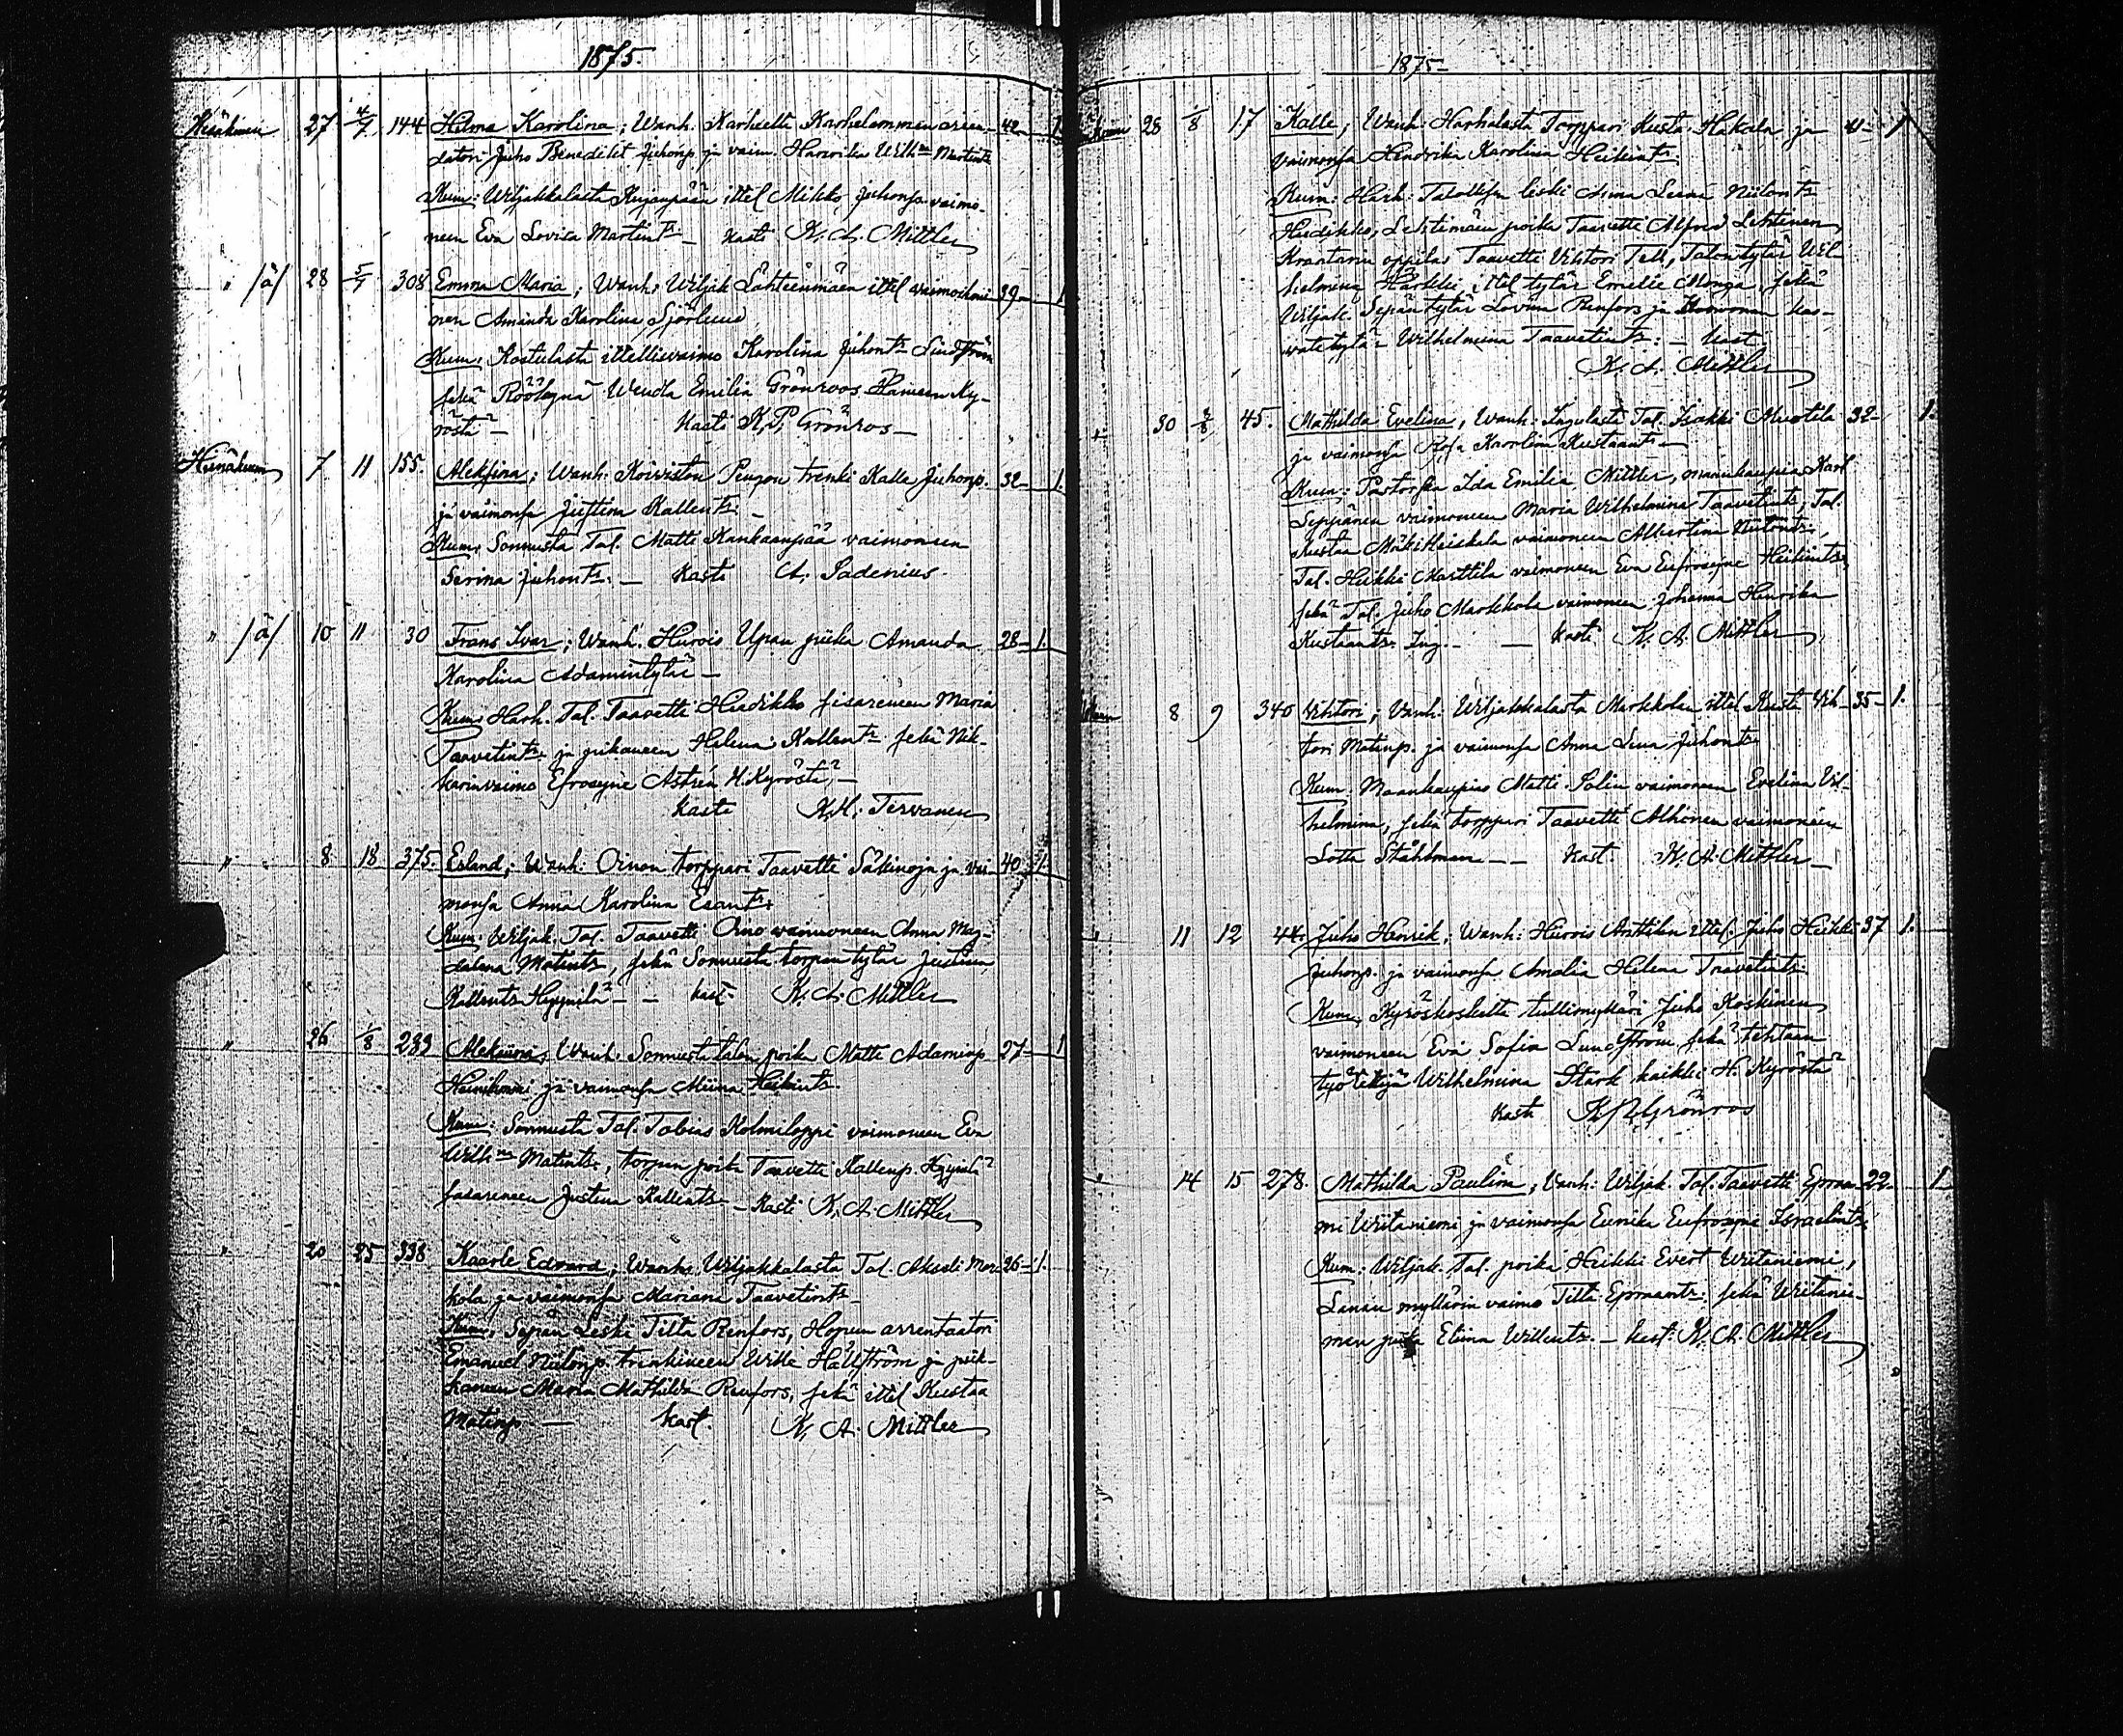 1875.
Kesäkuun 27 4/7 144 Hilma Karolina; Wanh. Karhelammen arren- 42 1.
datori Juho Benedikt Juhonp. ja vaim. Wilh:na Martints
Kum: Wiljakkalasta ittel Mikko Juhonp. vaimo-
neen Eva Lovisa Martints. — kasti K. A. Mittler
" /ä/ 28 5/7 308 Emma Maria; Wanh: Wiljak. Lähteenmäen ittel vaimoihmi- 39 1
nen Amanda Karolina Sjörlund
Kum: ittellisvaimo Karolina Juhonts Lindström
sekä Wendla Emilia Grönroos Hämeenky-
röstä — kasti K. P. Grönros —
Heinäkuun 7 11 155. Aleksina; Wanh: Koiviston trenki Kalle Juhonp. 32 1.
ja vaimonsa Justina Kallents. —
Kum: Sonnusta Tal. Matti Kankaanpää vaimoneen
Serina Juhonts. — kasti A. Sadenius.
" /ä/ 10 11 30 Frans Ivar; Wanh. Hurois Upan piika Amanda 28 1.
Karolina Adamintytär —
Kum: Harh. Tal. Taavetti Hiidikko sisareneen Maria
Taavetints. ja piikaneen Helena Kallents sekä Nik-
karinvaimo Efrosyne Astrén H.Kyröstä, —
kasti K. H. Tervanen
" 8 18 375. Erland; Wanh. Oinon torppari Taavetti Säkinoja ja vai- 40 1.
monsa Anna Karolina Esants.
Kum: Wiljak. Tal. Taavetti Oino vaimoneen Anna Mag-
dalena Matints, sekä Sonnusta torpan tytär Justina
Kallents Hyynilä — — kast. K. A. Mittler
" 26 1/8 289 Aleksiina; Wanh. Sonnusta talon poika Matti Adaminp. 27 1
ja vaimonsa Miina Heikints.
Kum: Sonnusta Tal. Tobias Kolmiloppi vaimoneen Eva
Wilh:na Matints., torpan poika Taavetti Kallenp. Hyynilä
sisareneen Justina Kallents — Kasti K. A. Mittler
" 20 25 338 Kaarle Edvard; Wanh: Wiljakkalasta Tal. Akseli Mar- 26 1.
kola ja vaimonsa Mariana Taavetints —
Kum: Sepän Leski Tilta Renfors, Hopun arrentaatori
Emanuel Niilonp. trenkineen Wille Hällström ja piik-
kaneen Maria Mathilda Renfors, sekä ittel Kustaa
Matinp. — kast. K. A. Mittler
1875
28 1/8 17 Kalle; Wanh: Harhalasta Torppari Kusta Hakala ja 41 1
vaimonsa Hendrika Karolina Heikints.
Kum: Harh: Talollisen leski Anna Leena Niilonts
Hiidikko, Lehtimäen poika Taavetti Alfred Lehtinen,
oppilas Taavetti Vihtori Tell, Talontytär Wil-
helmina Härkki, ittel tytär Emelie Monga, sekä
Wiljak. Sepän tytär Lovisa Renfors ja kas-
vatetytär Wilhelmina Taavetints: — kast.
K. A. Mittler
30 2/8 45. Mathilda Evelina, Wanh: Ingulasta Tal. Isakki Muotila 32 1.
ja vaimonsa Rosa Karolina Kustaants —
Kum: Pastorska Ida Emilia Mittler, maankauppias Karl
Seppänen vaimoneen Maria Wilhelmina Taavetints, Tal.
Kustaa Mäki Heiskala vaimoneen Albertina Niilonts.,
Tal. Heikki Marttila vaimoneen Eva Eufrosyne Heikints.,
sekä Tal. Juho Markkola vaimoneen Johanna Henrika
Kustaants. Ing. — — kasti K. A. Mittler
8 9 340 Vihtori; Vanh: Wiljakkalasta Markkolan ittel Kusta Vih- 35 1.
tori Matinp. ja vaimonsa Anna Liisa Juhonts
Kum: Maankauppias Matti Salin vaimoneen Evelina Vil-
helmina, sekä torppari Taavetti Alhonen vaimoneen
Lotta Ståhlman — — Kast. K. A. Mittler —
" 11 12 44. Juho Henrik; Wanh: Hurois Anttilan ittel. Juho Heikki 37 1.
Juhonp. ja vaimonsa Amalia Helena Taavetints.
Kum: Kyröskoskelta tullimylläri Juho Koskinen
vaimoneen Eva Sofia Lundström sekä tehtaan
työ tekijä Wilhelmina Stark kaikki H. Kyröstä
kasti K P Grönroos
" 14 15 278. Mathilda Paulina; Vanh: Wiljak. Tal. Taavetti Eprai- 22 1
mi Wiitaniemi ja vaimonsa Eunika Eufrosyne Israelints.
Kum: Wiljak. Tal. poika Heikki Evert Wiitaniemi,
Lanan myllärin vaimo Tilta Epraamts: sekä Wiitanie-
men piika Elina Willents. — kast. K. A. Mittler